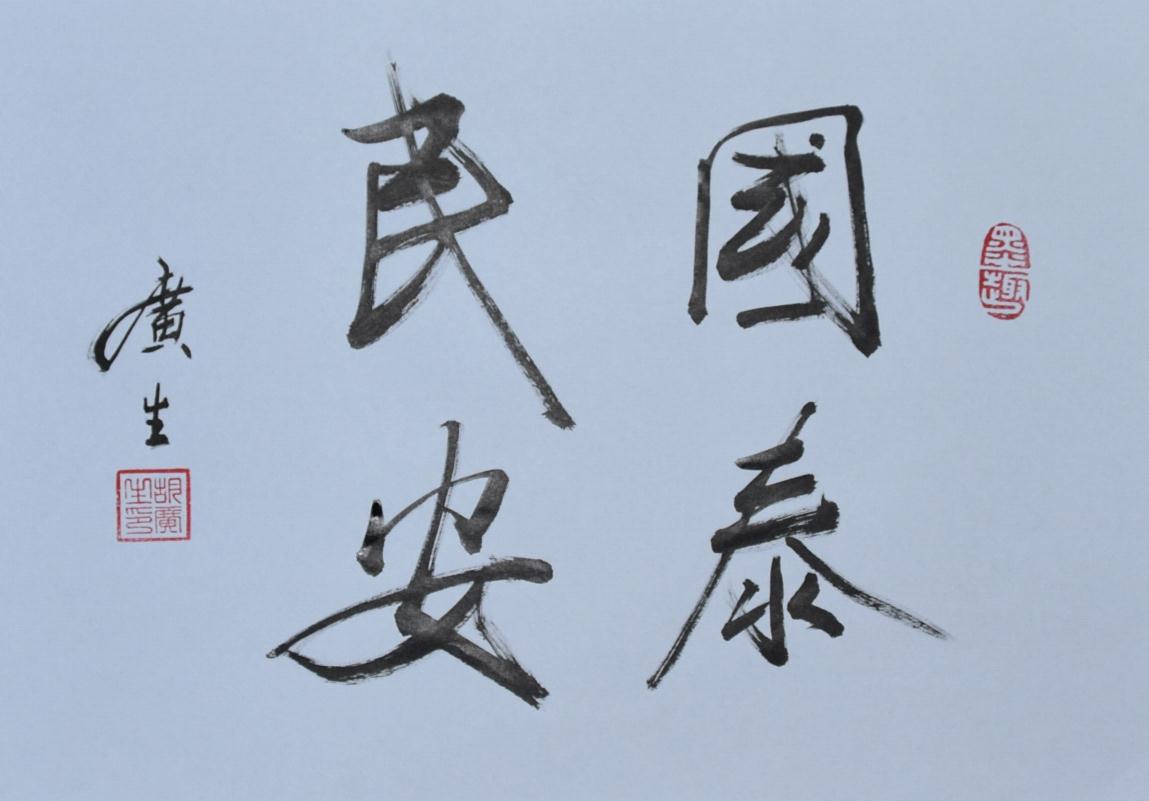 墨趣
國泰
民安
廣生
胡廣生印